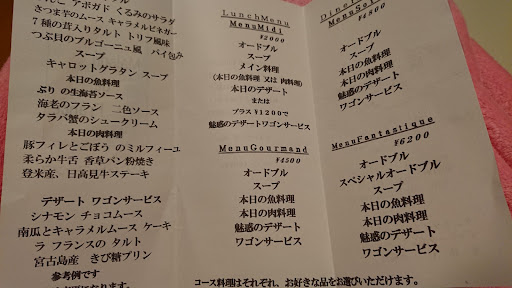 アボガド くるみのサラダ
さつま芋のムース キャラメルビネガー
7種の茸入りタルト トリフ風味
つぶ貝のブルゴーニュ風 パイ包み
スープ
キャロットグラタン スープ
本日の魚料理
ぶり の生海苔ソース
海老のフラン 二色ソース
タラバ蟹のシュークリーム
本日の肉料理
豚フィレとごぼう のミルフィーユ
柔らか牛舌 香草パン粉焼き
登米産、日高見牛ステーキ
デザート ワゴンサービス
シナモン チョコムース
南瓜とキャラメルムース ケーキ
ラ フランスの タルト
宮古島産 きび糖プリン
参考例です
LunchMenu
MenuMidi
¥2000
オードブル
スープ
メイン料理
(本日の魚料理 又は 肉料理)
本日のデザート
または
プラス¥1200で
魅惑のデザートワゴンサービス
MenuGourmand
¥4500
オードブル
スープ
本日の魚料理
本日の肉料理
魅惑のデザート
ワゴンサービス
¥4800
オードブル
スープ
本日の魚料理
本日の肉料理
魅惑のデザート
ワゴンサービス
MenuFantastique
¥6200
オードブル
スペシャルオードブル
スープ
本日の魚料理
本日の肉料理
魅惑のデザート
ワゴンサービス
コース料理はそれぞれ、お好きな品をお選びいただけます。